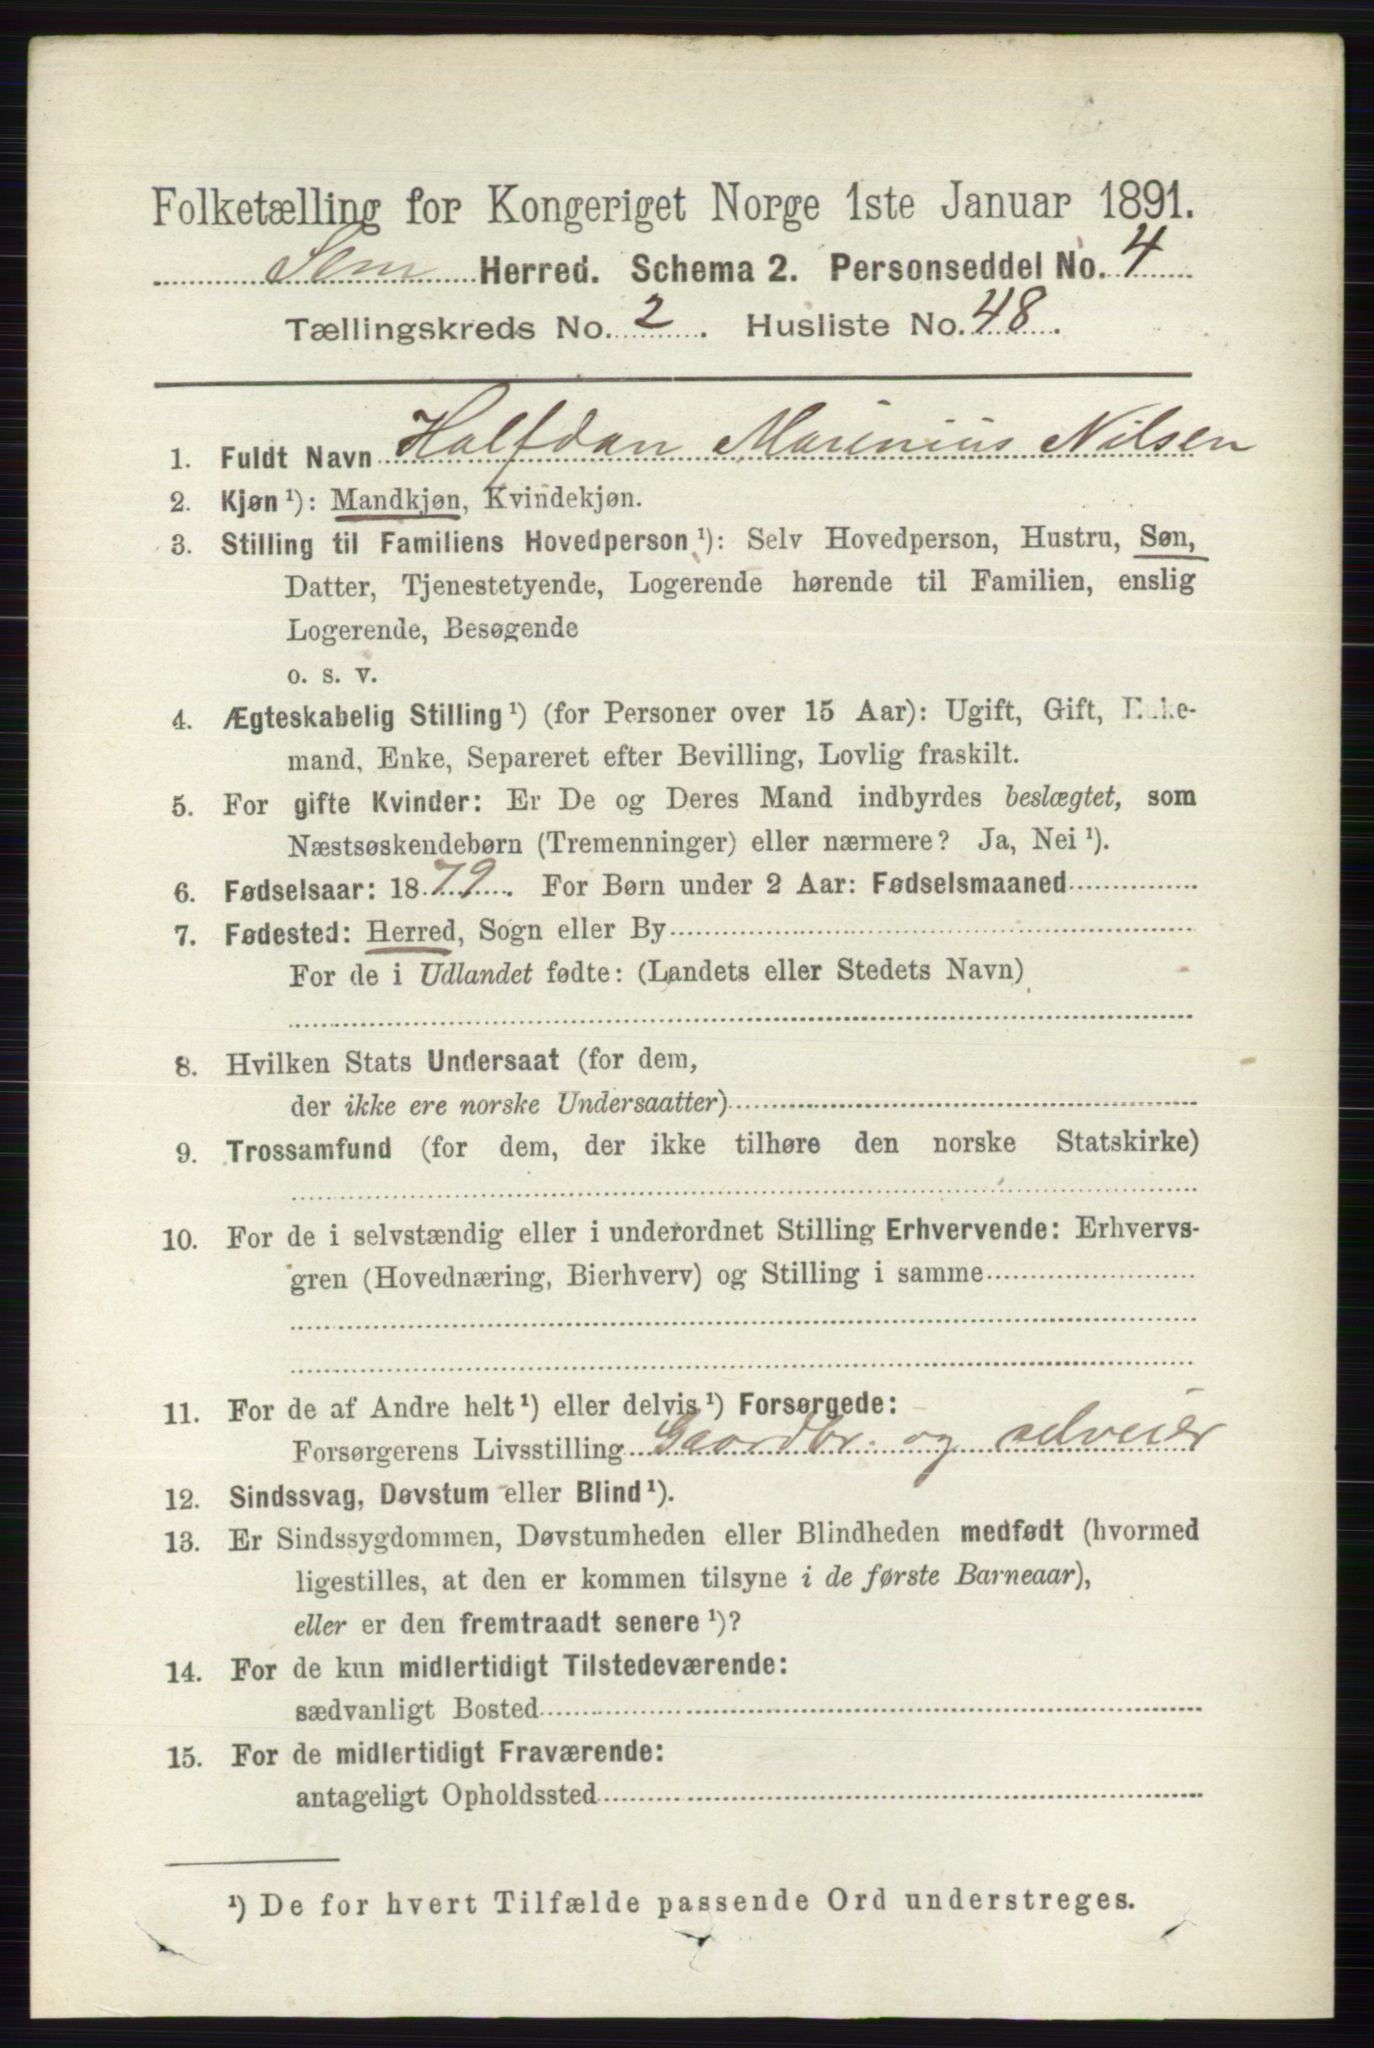 Folketælling for Kongeriget Norge 1ste Januar 1891.
Sem Herred. Schema 2. Personseddel No. 4
Tællingskreds No. 2. Husliste No. 48.
1. Fuldt Navn Halfdan Marinius Nilsen
2. Kjøn ¹): Mandkjøn, Kvindekjøn.
3. Stilling til Familiens Hovedperson ¹): Selv Hovedperson, Hustru, Søn,
Datter, Tjenestetyende, Logerende hørende til Familien, enslig
Logerende, Besøgende
o. s. v.
4. Ægteskabelig Stilling ¹) (for Personer over 15 Aar): Ugift, Gift, Enke-
mand, Enke, Separeret efter Bevilling, Lovlig fraskilt.
5. For gifte Kvinder: Er De og Deres Mand indbyrdes beslægtet, som
Næstsøskendebørn (Tremenninger) eller nærmere? Ja, Nei ¹).
6. Fødselsaar: 1879. For Børn under 2 Aar: Fødselsmaaned
7. Fødested: Herred, Sogn eller By
For de i Udlandet fødte: (Landets eller Stedets Navn)
8. Hvilken Stats Undersaat (for dem,
der ikke ere norske Undersaatter)
9. Trossamfund (for dem, der ikke tilhøre den norske Statskirke)
10. For de i selvstændig eller i underordnet Stilling Erhvervende: Erhvervs-
gren (Hovednæring, Bierhverv) og Stilling i samme
11. For de af Andre helt ¹) eller delvis ¹) Forsørgede:
Forsørgerens Livsstilling Gaardbr. og selveier
12. Sindssvag, Døvstum eller Blind ¹).
13. Er Sindssygdommen, Døvstumheden eller Blindheden medfødt (hvormed
ligestilles, at den er kommen tilsyne i de første Barneaar),
eller er den fremtraadt senere ¹)?
14. For de kun midlertidigt Tilstedeværende:
sædvanligt Bosted
15. For de midlertidigt Fraværende:
antageligt Opholdssted
¹) De for hvert Tilfælde passende Ord understreges.